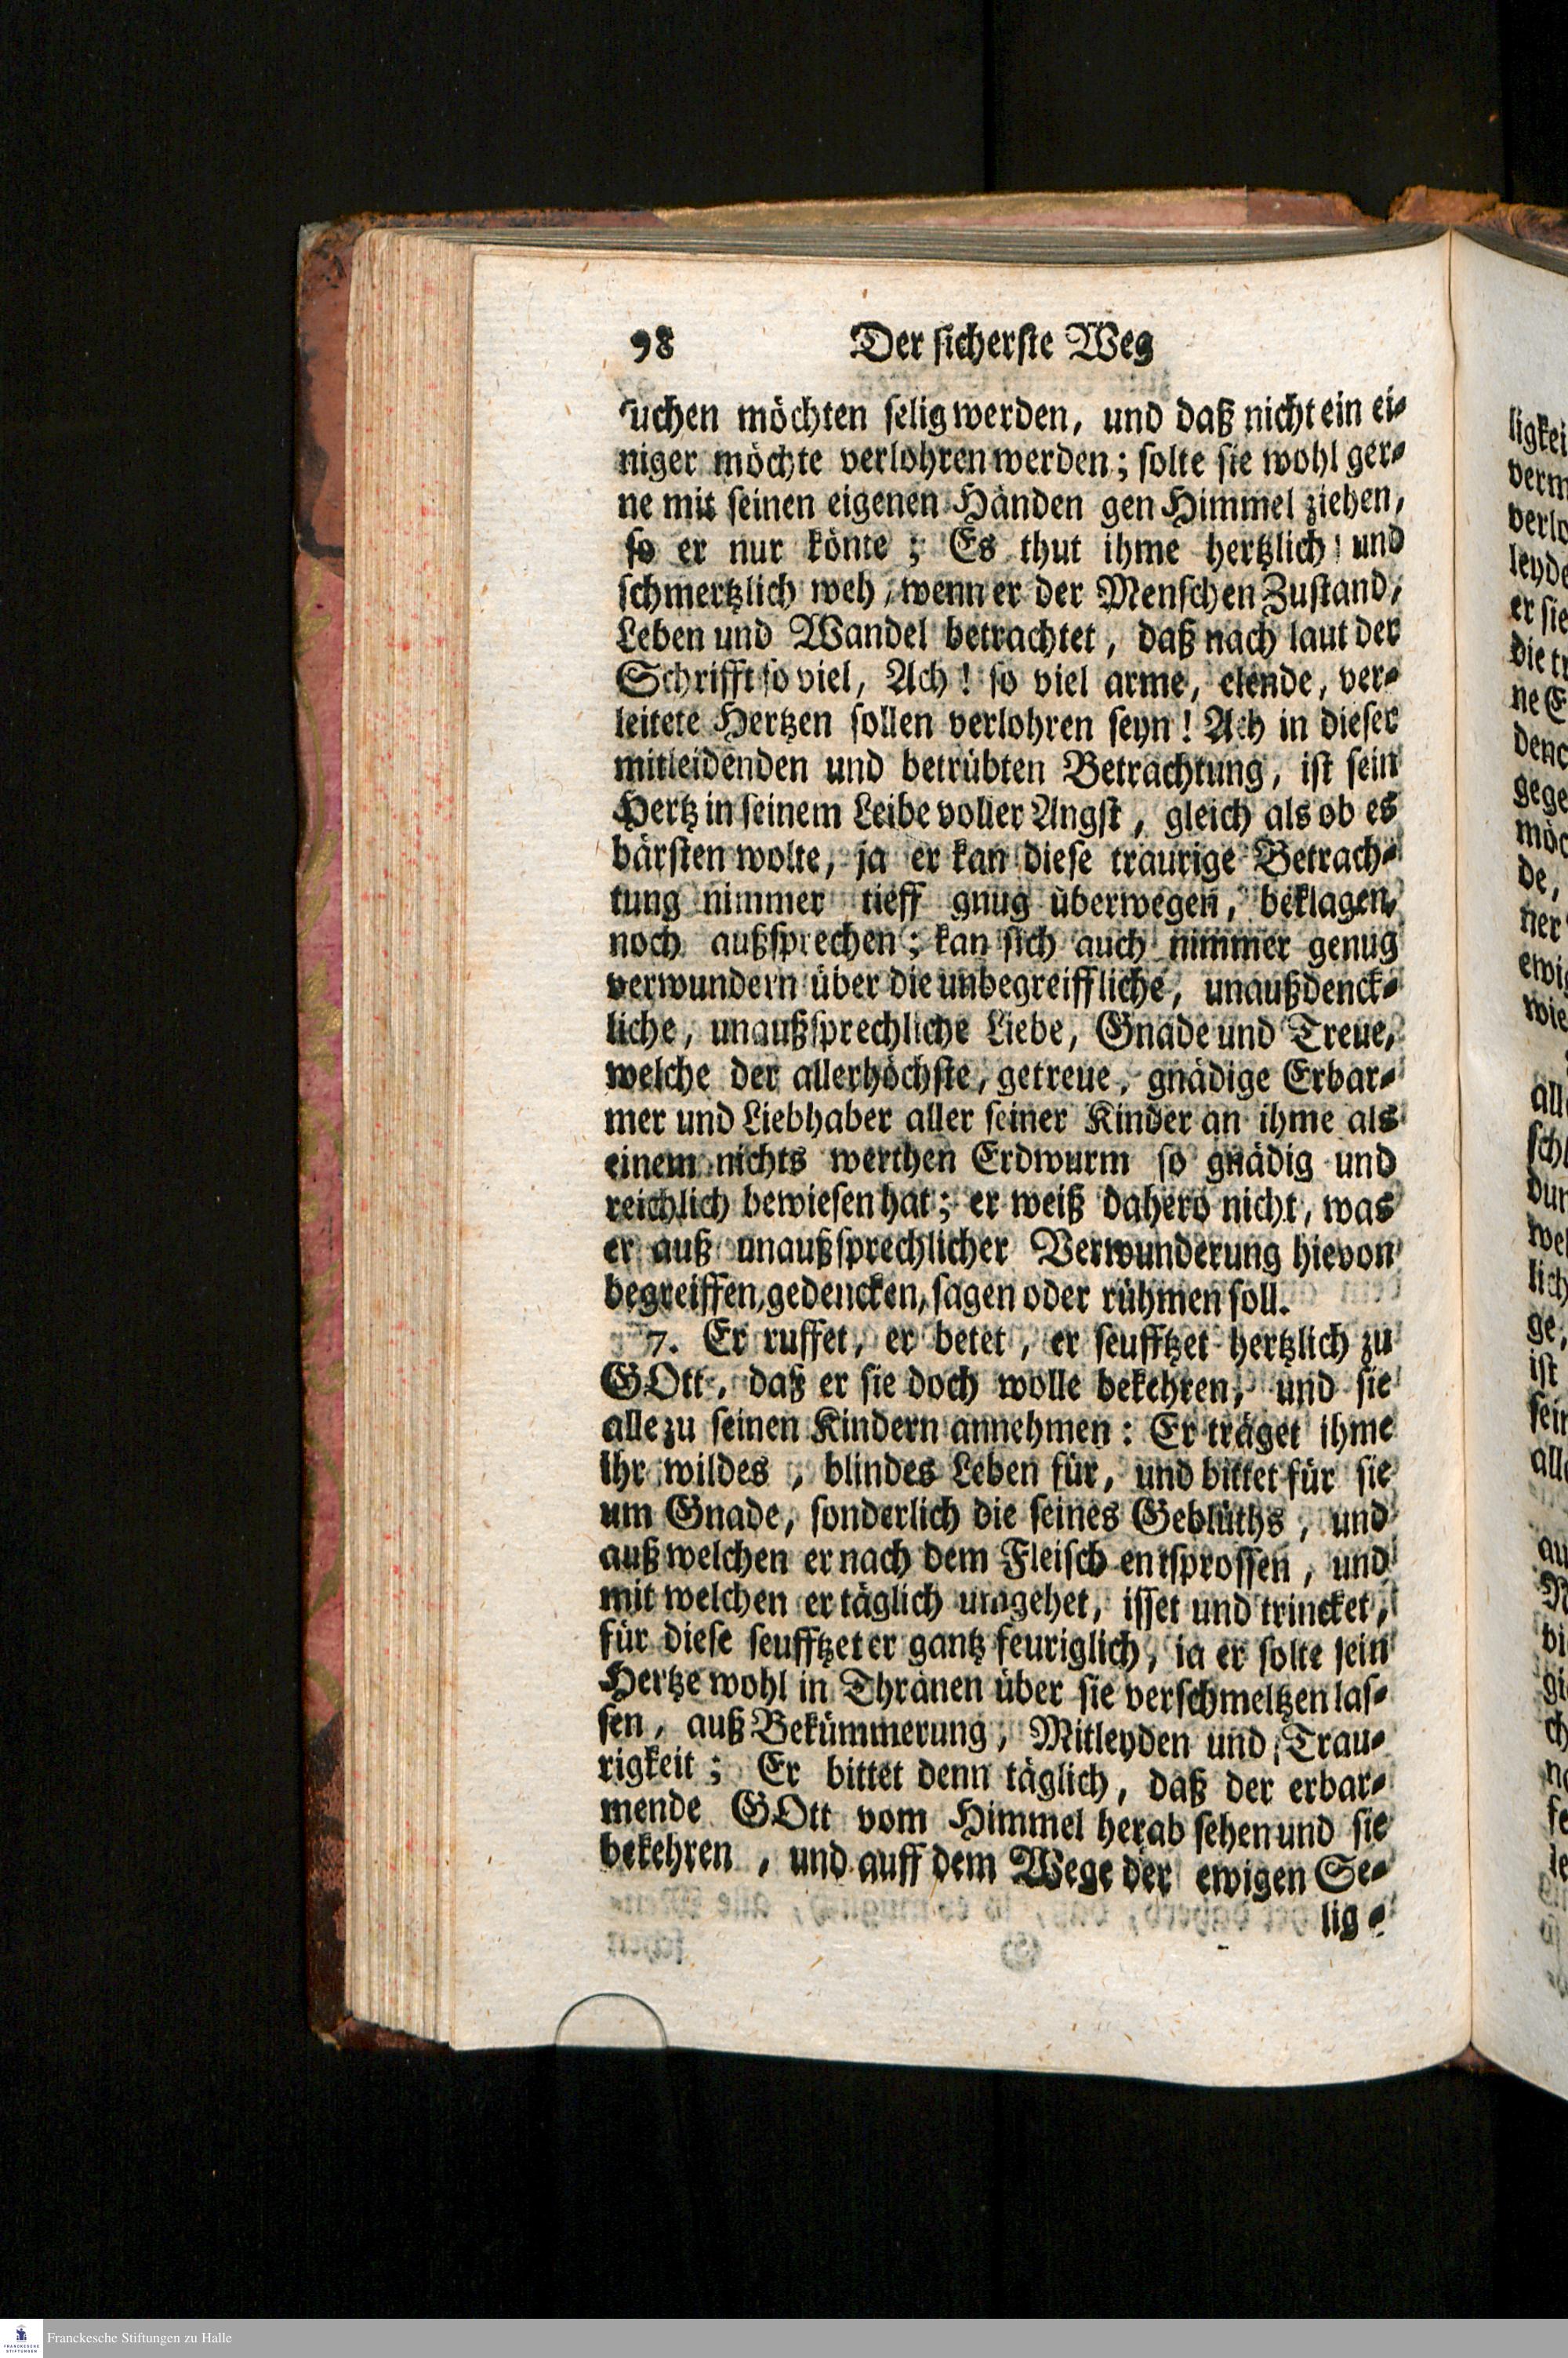 98 Der sicherste Weg
uchen möchten selig werden, und daß nicht ein ei-
niger möchte verlohren werden; solte sie wohl ger-
ne mit seinen eigenen Händen gen Himmel ziehen,
so er nur könte; Es thut ihme hertzlich und
schmertzlich weh, wenn er der Menschen Zustand,
Leben und Wandel betrachtet, daß nach laut der
Schrifft so viel, Ach! so viel arme, elende, ver-
leitete Hertzen sollen verlohren seyn! Ach in dieser
mitleidenden und betrübten Betrachtung, ist sein
Hertz in seinem Leibe voller Angst, gleich als ob es
bärsten wolte, ja er kan diese traurige Betrach-
tung nimmer tieff gnug überwegen, beklagen,
noch außsprechen; kan sich auch nimmer genug
verwundern über die unbegreiffliche, unaußdenck-
liche, unaußsprechliche Liebe, Gnade und Treue,
welche der allerhöchste, getreue, gnädige Erbar-
mer und Liebhaber aller seiner Kinder an ihme als
einem nichts werthen Erdwurm so gnädig und
reichlich bewiesen hat; er weiß dahero nicht, was
er auß unaußsprechlicher Verwunderung hievon
begreiffen, gedencken, sagen oder rühmen soll.
7. Er ruffet, er betet, er seufftzet hertzlich zu
GOtt, daß er sie doch wolle bekehren, und sie
alle zu seinen Kindern annehmen: Er träget ihme
ihr wildes, blindes Leben für, und bittet für sie
um Gnade, sonderlich die seines Geblüths, und
auß welchen er nach dem Fleisch entsprossen, und
mit welchen er täglich umgehet, isset und trincket,
für diese seufftzet er gantz feuriglich, ja er solte sein
Hertze wohl in Thränen über sie verschmeltzen las-
sen, auß Bekümmerung, Mitleyden und Trau-
rigkeit; Er bittet denn täglich, daß der erbar-
mende GOtt vom Himmel herab sehen und sie
bekehren, und auff dem Wege der ewigen Se-
lig-
Franckesche Stiftungen zu Halle